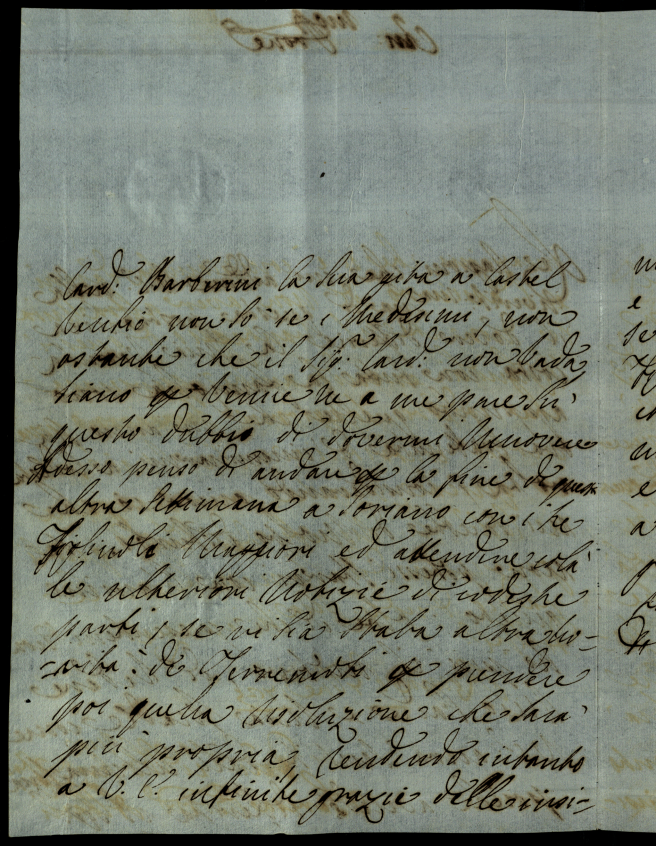 Card: Barberini la sua gita a Castel
Vecchio non so se i Medesimi, non
ostante che il Sig. Card: non vada
siano per venire ne a me pare su
questo dubbio di dovermi Muovere
Adesso penso di andare per la fine di quest
altra Settimana a Soriano con i tre
Figlinoli Maggiori ed attendere colà
le ulteriori Notizie di codeste
parti, se vi sia Stata altra no=
=vita: di Terremoti per prendere
poi quella risoluzione che sarà
più propria, rendendo intanto
a V. E. infinite grazie delle insi=